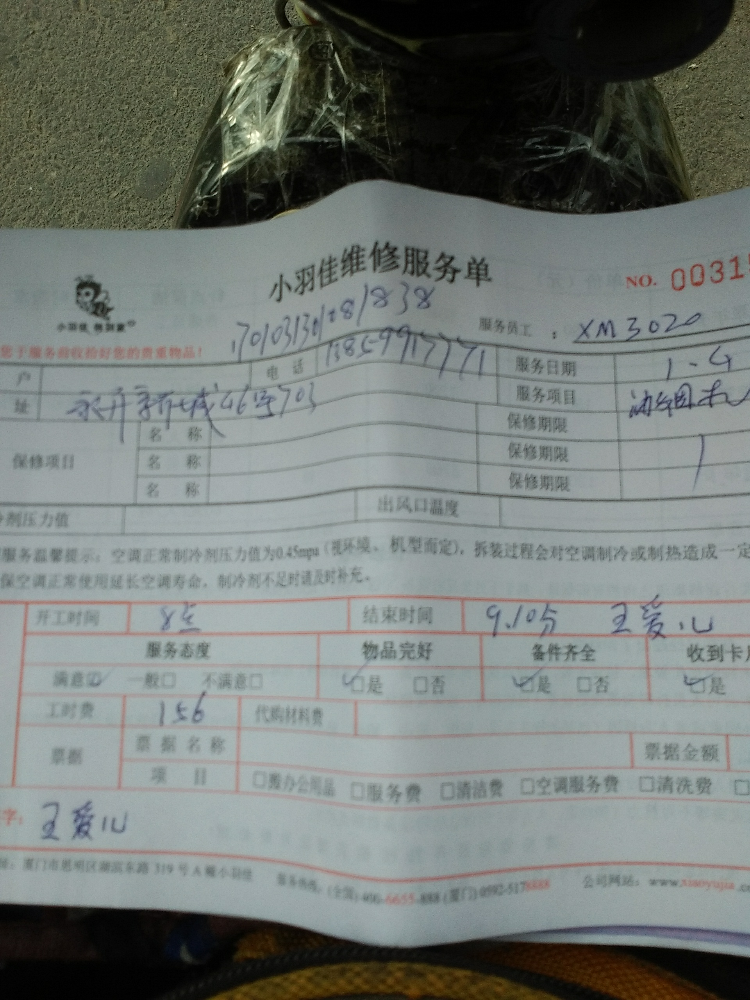 小羽佳维修服务单
NO. 0031
小羽佳 你到家
1701031301281838
服务员工：XM3020
您于服务前收拾好您的贵重物品！
户 电话 13859917771 服务日期 1.4
址 新城46号703 服务项目 油烟机
保修项目 名称 保修期限
名称 保修期限
名称 保修期限
剂压力值 出风口温度
服务温馨提示：空调正常制冷剂压力值为0.45mpa（视环境、机型而定），拆装过程会对空调制冷或制热造成一定
保空调正常使用延长空调寿命，制冷剂不足时请及时补充。
开工时间 8点 结束时间 9.10分 王爱儿
服务态度 物品完好 备件齐全 收到卡
满意☑ 一般□ 不满意□ ☑是 □否 ☑是 □否 ☑是
工时费 156 代购材料费
票据 票据名称 票据金额
项目 □搬办公用品 □服务费 □清洁费 □空调服务费 □清洗费 □
字：王爱儿
址：厦门市思明区湖滨东路319号A幢小羽佳 服务热线：(全国)400-6655-888 (厦门)0592-5178888 公司网站：www.xiaoyujia.c